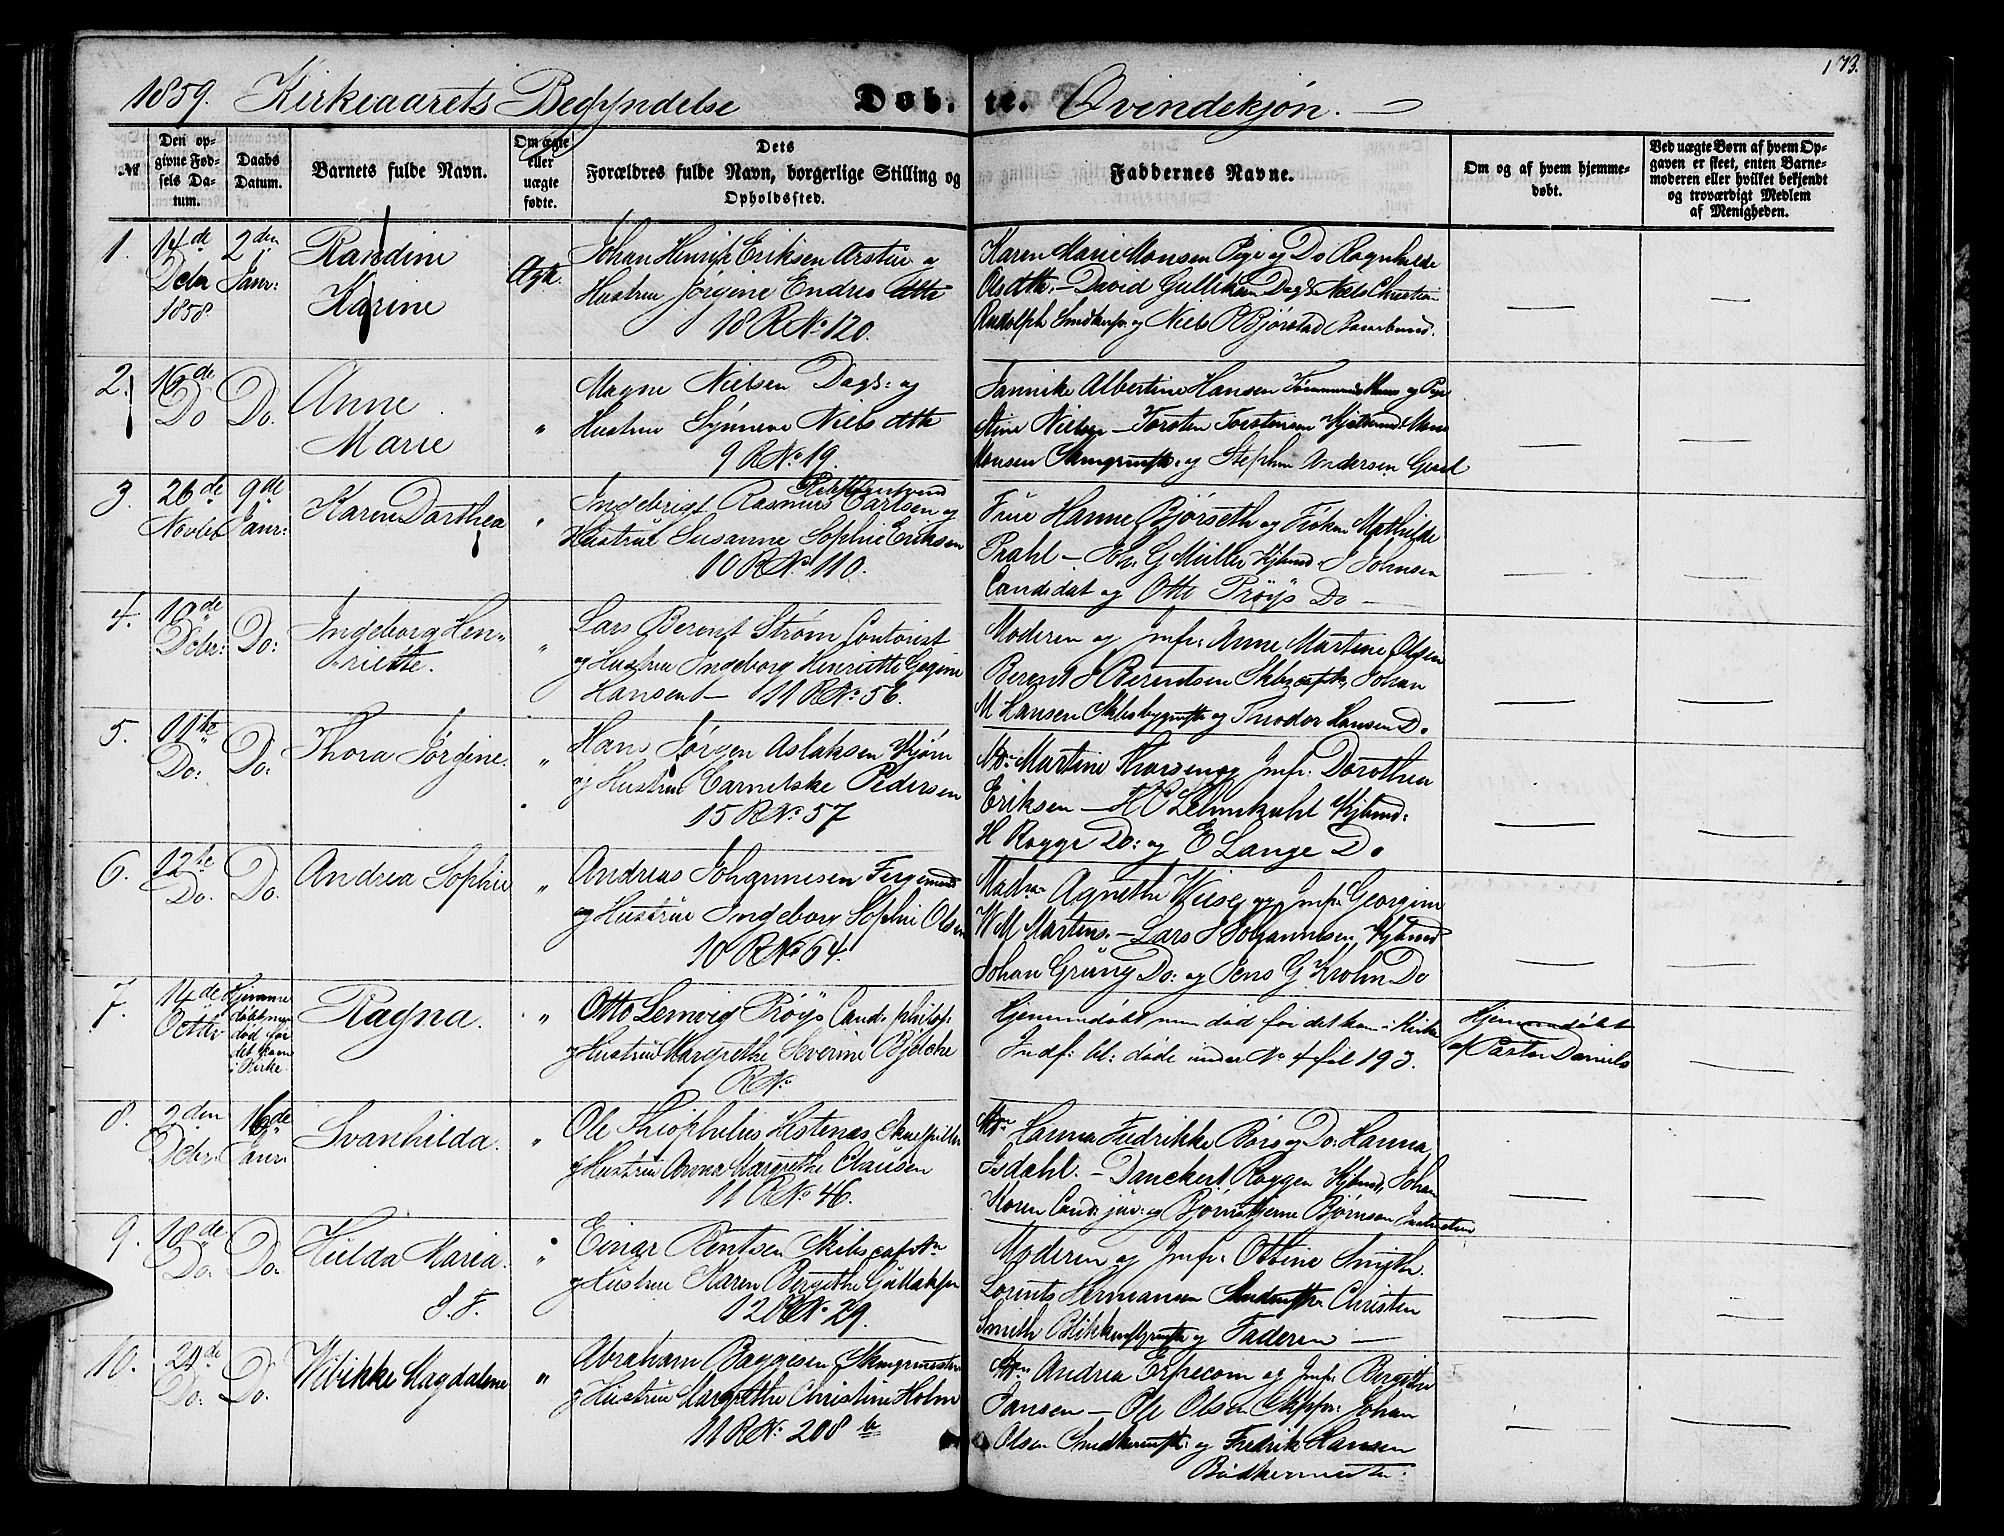 173.
1859. Kirkeaarets Begyndelse Døb- te. Qvindekjøn.
№
Den opgivne Fødsels Datum.
Daabs Datum.
Barnets fulde Navn.
Om ægte eller uægte fødte.
Dets Forældres fulde Navn, borgerlige Stilling og Opholdssted.
Faddernes Navne.
Om og af hvem hjemmedøbt.
Ved uægte Børn af hvem Opgaven er skeet, enten Barnemoderen eller hvilket bekjendt og troværdigt Medlem af Menigheden.
1. 14de Decbr 1858 2den Janr:
Randine
Karine
Ægte.
Johan Henrik Eriksen og
Hustru Jørgine Endres Dttr
18 R No 120.
Karen Marie Monsen Pige og Do Ragnhilde
Olsdtr. - David Gulliksen Dags Niels Christian
Rudolph Smedksv. og Niels R Bjørstad
2. 16de Do Do.
Anne
Marie
"
Magne Nielsen Dags: og
Hustru Synneve Niels Dttr
9 R No 19.
Jannike Albertine Hansen og Pige
Stine Nielsen - Torsten Torstensen Mons
Monsen og Stephen Andersen
3. 26de Novbr 9de Janr:
Karen Dorthea
"
Ingebrigt Rasmus Carlsen og
Hustrue Susanne Sophie Eriksen
10 R No 110.
Frue Hanne Bjørseth og Frøken Mathilde
Prahl - Chr. G Müller Kjbmd J Johnsen
Candidat og Otto Prøys Do -
4. 10de Decbr: Do:
Ingeborg Hen-
riette.
"
Lars Berent Strøm Contorist
og Hustru Ingeborg Henriette Gegine
Hansen - 11 R No 56.
Moderen og Jmfr: Anne Martine Olsen
Berent H Berendsen Skbscapt, Johan
M Hansen Skibsbygmstr og Theodor Hansen Do
5. 11te Do: Do:
Thora Jørgine.
"
Hans Jørgen Aslaksen
og Hustrue Carnelske Pedersen
15 R No 57
Martine Thorsen og Jmfr. Dorothea
Eriksen - K C Lehmkuhl Kjbmd:
H Rogge Do: og E Lange Do
6. 12te Do. Do.
Andrea Sophie
"
Andreas Johannesen Fergemand
og Hustrue Ingeborg Sophie Olsen
10 R No 64.
Madm Agnethe Wiese og Jmfr Georgine
W M Martens. - Lars J Johannesen, Kjbmd
Johan Grüng Do: og Jens G Krohn Do
7. 14de Octbr
Hjemme
døbt men
død før
det kom
i Kirke
Ragna.
"
Otto Lemvig Prøys Cand. philos.
og Hustrue Margrethe Severine Bjelche
R No
Hjemmedøbt men død før det kom i Kirke
Indf: bl: døde under No 4 fol 193.
Hjemmedøbt
af Pastor Daniels
8. 2den Decbr. 16de Janr.
Svanhilda.
"
Ole Theophilus Hestenæs Skuespiller
og Hustrue Anna Margrethe Clausen
11 R No 46.
Hanna Fredrikke Børs og Do: Hanna
Isdahl. - Danckert Roggen Kjbmd, Johan
Koren Cand: jur: og Bjørnstjerne Bjørnson Instructeur
9. 18de Do. Do.
Hilda Maria.
S. F.
"
Einar Rentsen Skibscaptn
og Hustrue Karen Bergithe Gullaksen
12 R No 29.
Moderen og Jmfr: Ottine Smith.
Lorents Hermansen Christen
Smith Blikkenslagermstr og Faderen -
10. 24de Do. Do.
Wibikke Magdalene
"
Abraham Baggesen
og Hustrue Margrethe Christine Holm
11 R No. 208 b
Andrea Erpecom og Jmfr. Birgithe
Jansen - Ole Olsen Skppr: Johan
Olsen og Fredrik Hansen
Bødkermester.